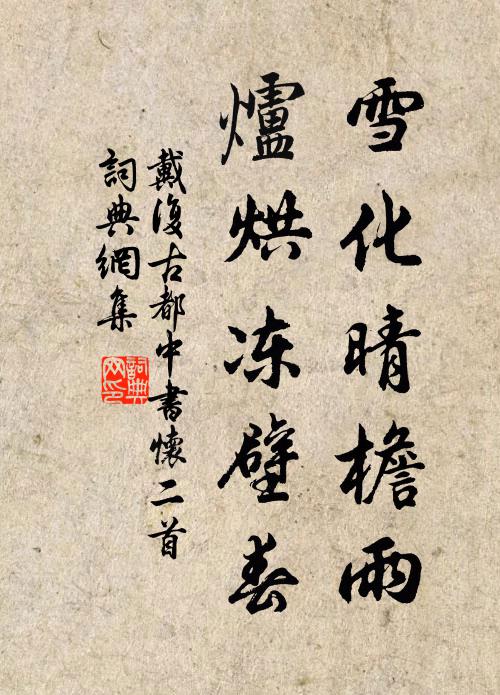 雪化晴檐雨
爐烘冻壁春
戴復古都中書懷二首
詞典網集
詞典
网印